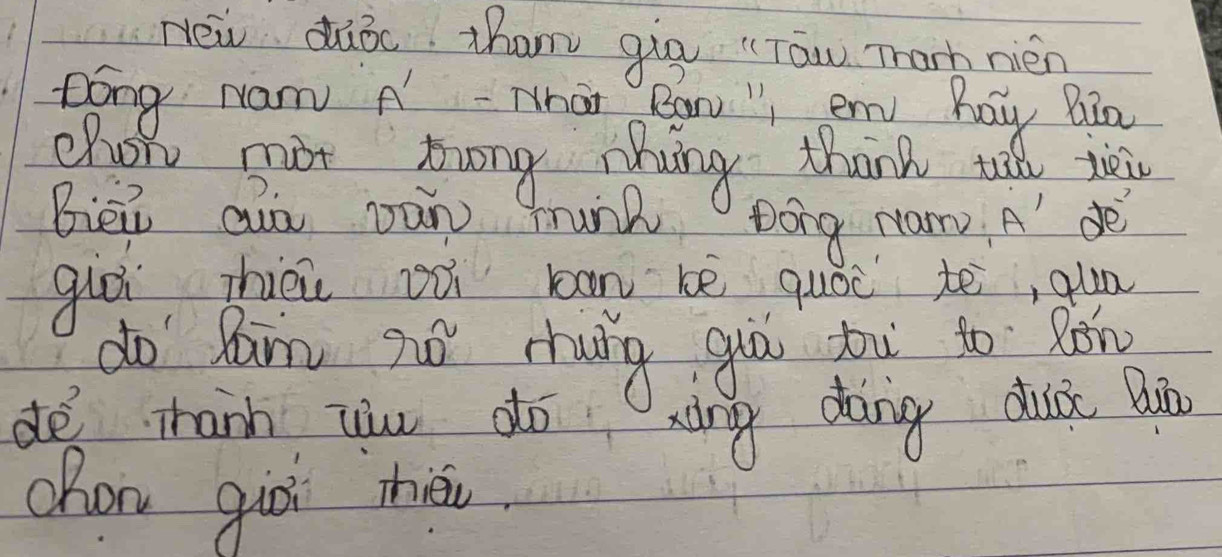 Nếu được tham gia "Tàu Thanh niên
Đông Nam Á - Nhật Bản", em hãy lựa
chọn một trong những thành tựu tiêu
biểu của văn minh Đông Nam Á để
giới thiệu với bạn bè quốc tế, qua
đó làm rõ những giá trị to lớn
để thành tựu đó xứng đáng được lựa
chọn giới thiệu.